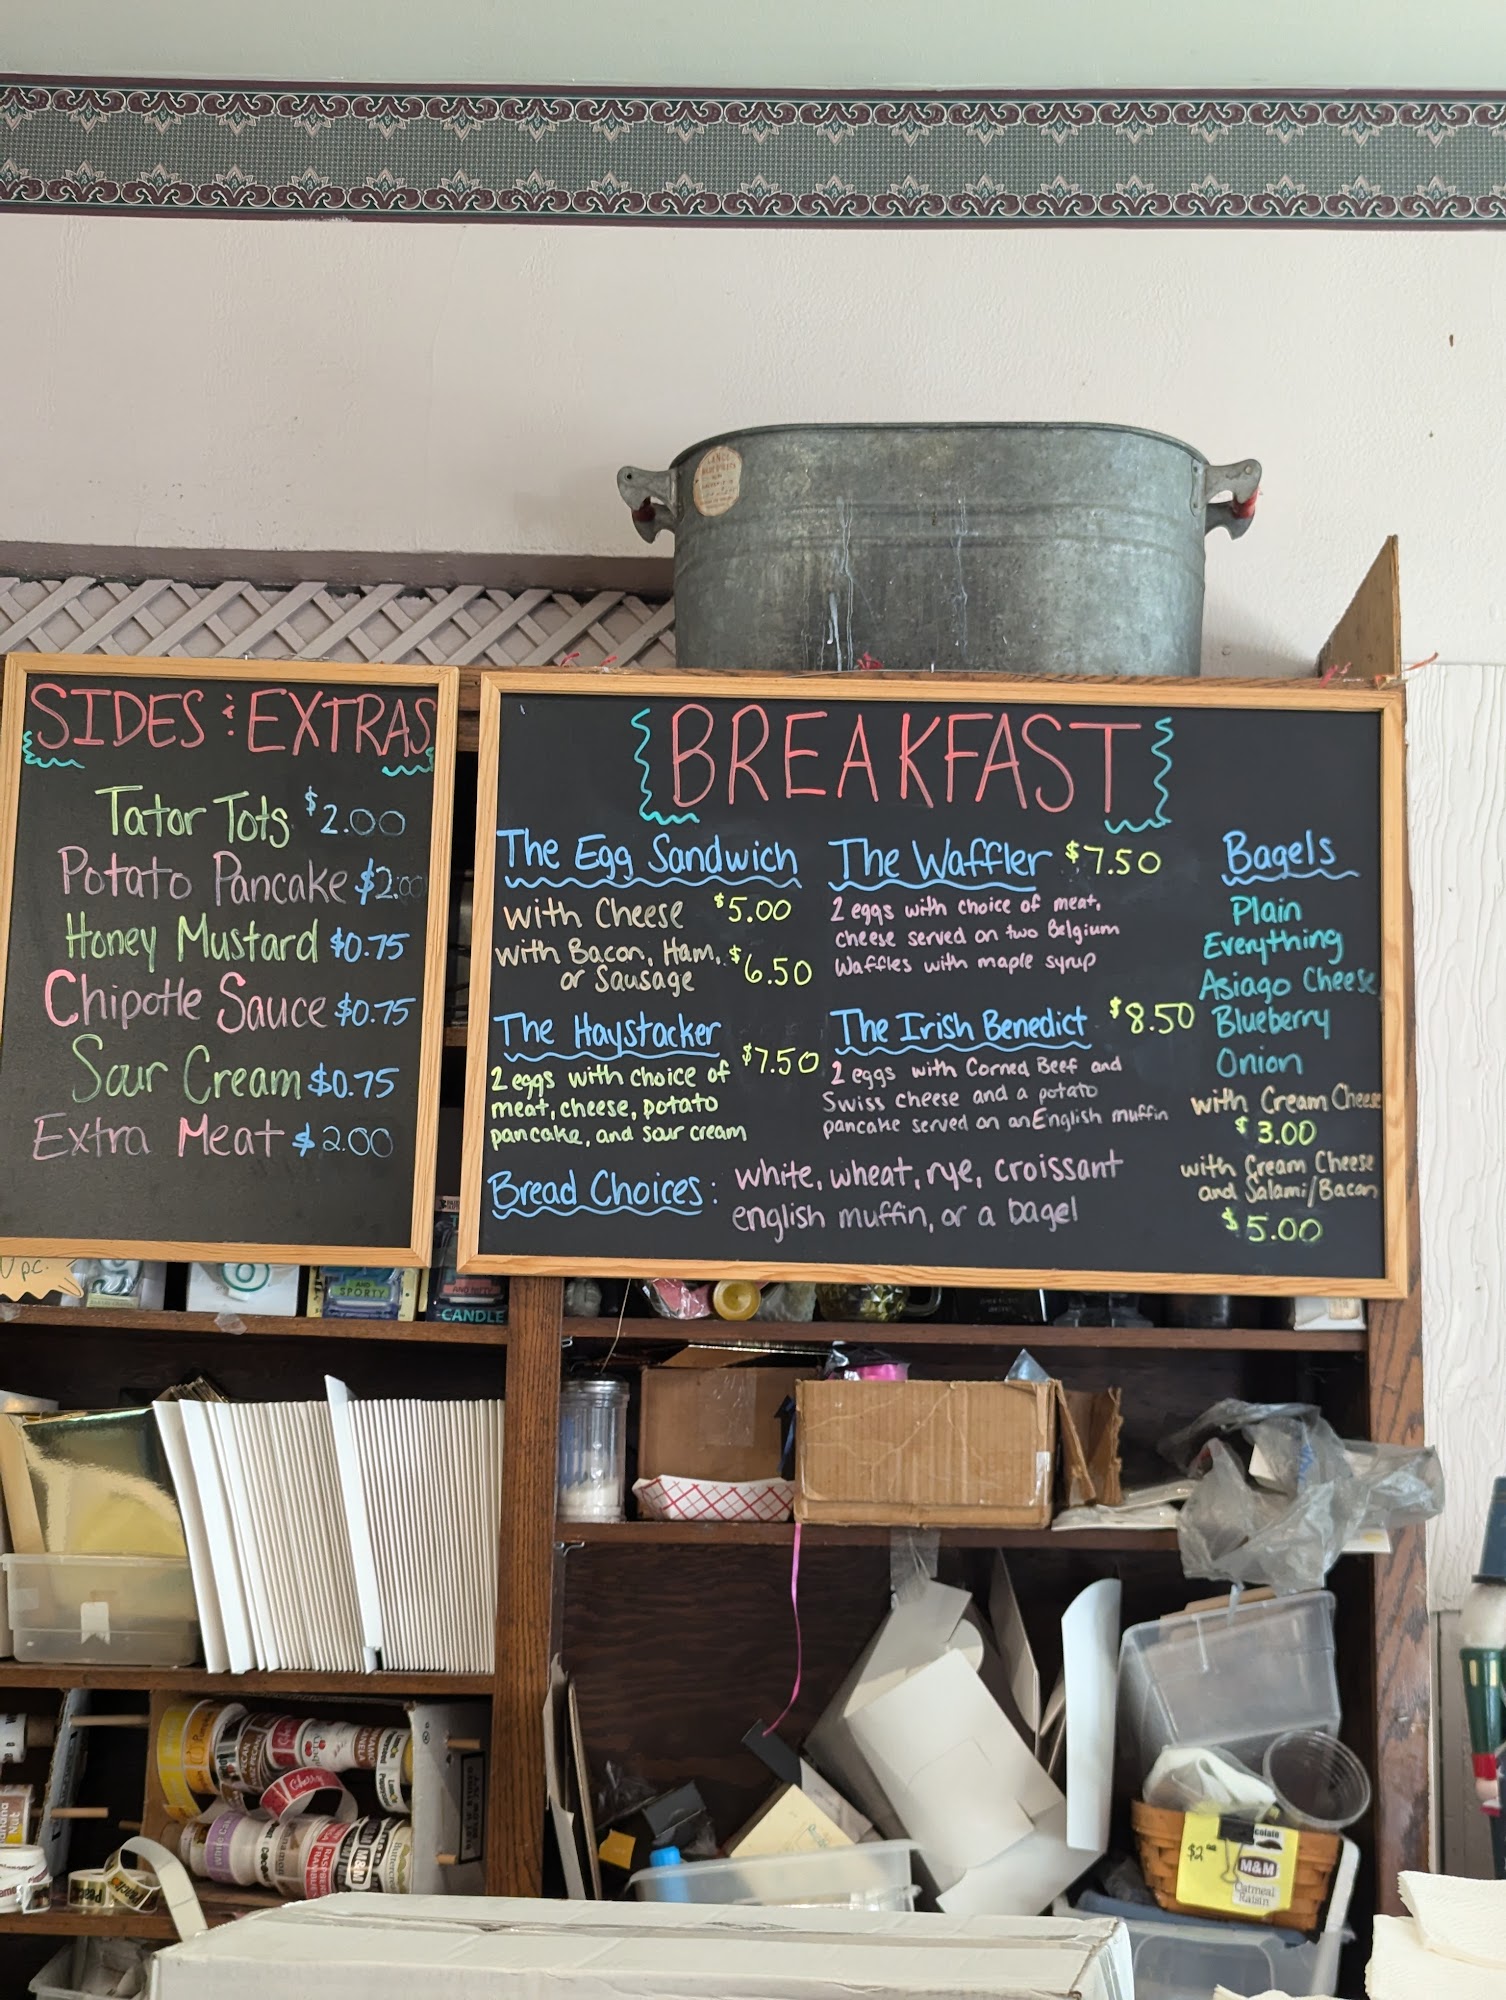 SIDES & EXTRAS
Tator Tots $2.00
Potato Pancake $2.00
Honey Mustard $0.75
Chipotle Sauce $0.75
Sour Cream $0.75
Extra Meat $2.00
BREAKFAST
The Egg Sandwich
with Cheese $5.00
with Bacon, Ham, or Sausage $6.50
The Haystacker $7.50
2 eggs with choice of
meat, cheese, potato
pancake, and sour cream
The Waffler $7.50
2 eggs with choice of meat,
cheese served on two Belgium
Waffles with maple syrup
The Irish Benedict $8.50
2 eggs with Corned Beef and
Swiss cheese and a potato
pancake served on an English muffin
Bread Choices: white, wheat, rye, croissant
english muffin, or a bagel
Bagels
Plain
Everything
Asiago Cheese
Blueberry
Onion
with Cream Cheese
$3.00
with Cream Cheese
and Salami/Bacon
$5.00
pc.
AND
SPORTY
CANDLE
Cherry
M&M
Peach
$2
M&M
Oatmeal
Raisin